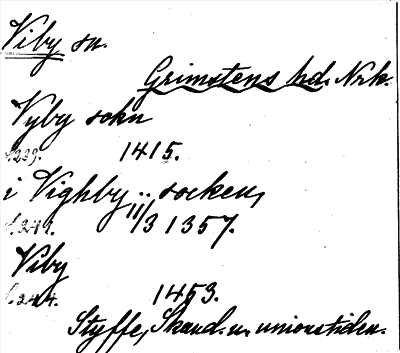 Viby sn.
Grimstens hd. Nrk.
Vyby sokn
s.239. 1415.
i Vighby .. socken,
s.249. 11/3 1357.
Viby
s.244. 1453.
Styffe, Skand. u. unionstiden.